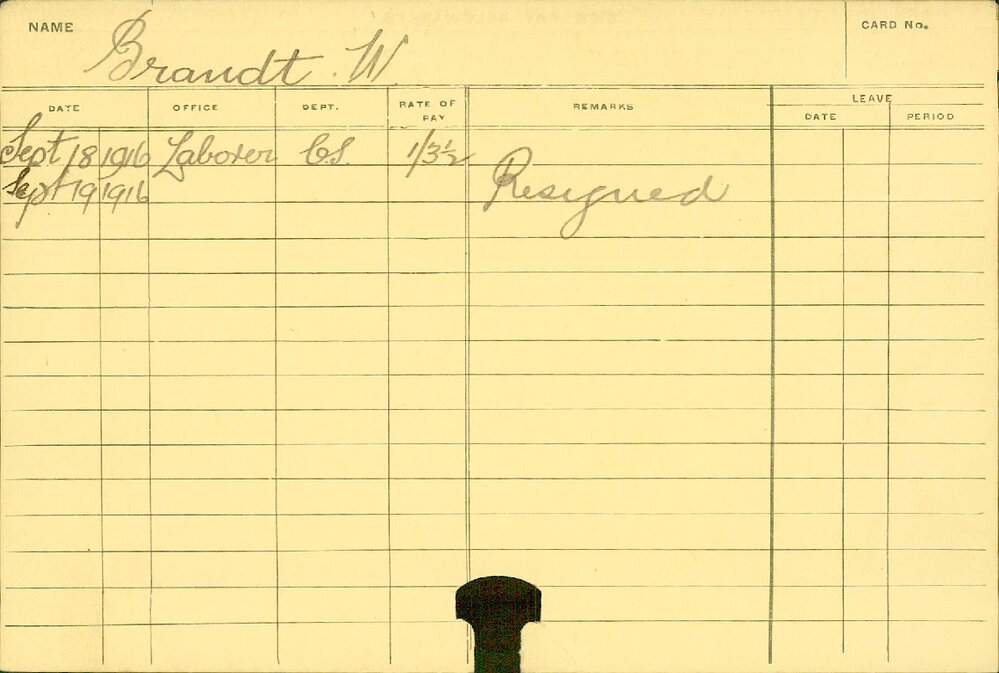 NAME Brandt. W. CARD No.
DATE OFFICE DEPT. RATE OF PAY REMARKS LEAVE
DATE PERIOD
Sept 18 1916 Laborer C.S. 1/3½
Sept 19 1916 Resigned